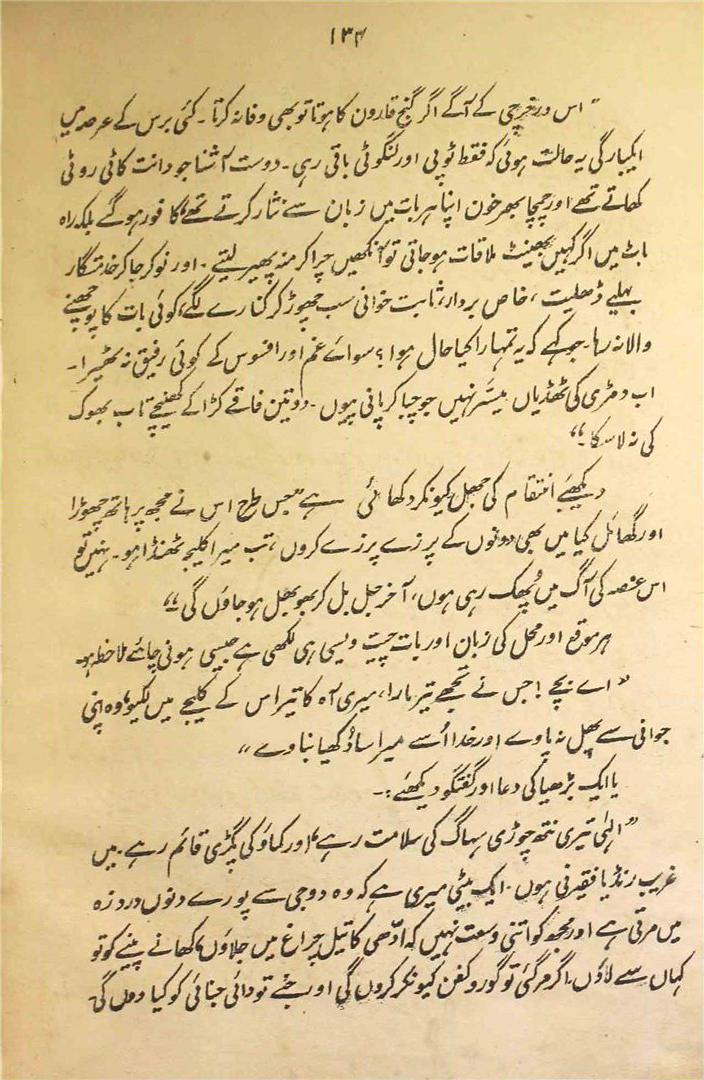 ۱۳۴
"اس درخرچی کے آگے اگر گنج قارون کا ہوتا تو بھی وفا نہ کرتا۔ کئی برس کے عرصہ میں
ایکبارگی یہ حالت ہوئی کہ فقط ٹوپی اور لنگوٹی باقی رہی۔ دوست آشنا جو دانت کاٹی روٹی
کھاتے تھے اور چمچا بھر خون اپنا ہر بات میں زبان سے نثار کرتے تھے، کافور ہو گے بلکہ راہ
باٹ میں اگر کہیں بھینٹ ملاقات ہو جاتی تو آنکھیں چرا کر منہ پھیر لیتے۔ اور نوکر چاکر خدمتگار
بہلیے ڈھلیت، خاص بردار، ثابت خوانی سب چھوڑ کر کنارے لگے، کوئی بات کا پوچھنے
والا نہ رہا۔ جو کہے کہ یہ تمہارا کیا حال ہوا؟ سوائے غم اور افسوس کے کوئی رفیق نہ ٹھیرا۔
اب دمڑی کی ٹھڈیاں میسر نہیں جو چبا کر پانی پیوں۔ دو تین فاقے کڑا کے کھینچے تاب بھوک
کی نہ لا سکا۔"
دیکھئے انتقام کی جھل کیونکر دکھائی ہے "جس طرح اس نے مجھ پر ہاتھ چھوڑا
اور گھائل کیا میں بھی دونوں کے پرزے پرزے کروں، تب میرا کلیجہ ٹھنڈا ہو۔ نہیں تو
اس غصہ کی آگ میں پھک رہی ہوں، آخر جل بل کر بھوبھل ہو جاؤں گی۔"
ہر موقع اور محل کی زبان اور بات چیت ویسی ہی لکھی ہے جیسی ہونی چاہئے ملاحظہ ہو۔
"اے بچے! جس نے تجھے تیر مارا، میری آہ کا تیر اس کے کلیجے میں لگیو، وہ اپنی
جوانی سے پھل نہ پاوے اور خدا اُسے میرا سا دُکھیا بناوے"
یا ایک بڑھیا کی دعا اور گفتگو دیکھئے:۔
"الٰہی تیری نتھ چوڑی سہاگ کی سلامت رہے، اور کماؤ کی پگڑی قائم رہے۔ میں
غریب رنڈیا فقیرنی ہوں۔ ایک بیٹی میری ہے کہ وہ دوجی سے پورے دنوں درد زہ
میں مرتی ہے اور مجھ کو اتنی وسعت نہیں کہ ادھی کا تیل چراغ میں جلاؤں، کھانے پینے کو تو
کہاں سے لاؤں۔ اگر مر گئی تو گور و کفن کیونکر کروں گی اور جنے تو دائی جنائی کو کیا دوں گی